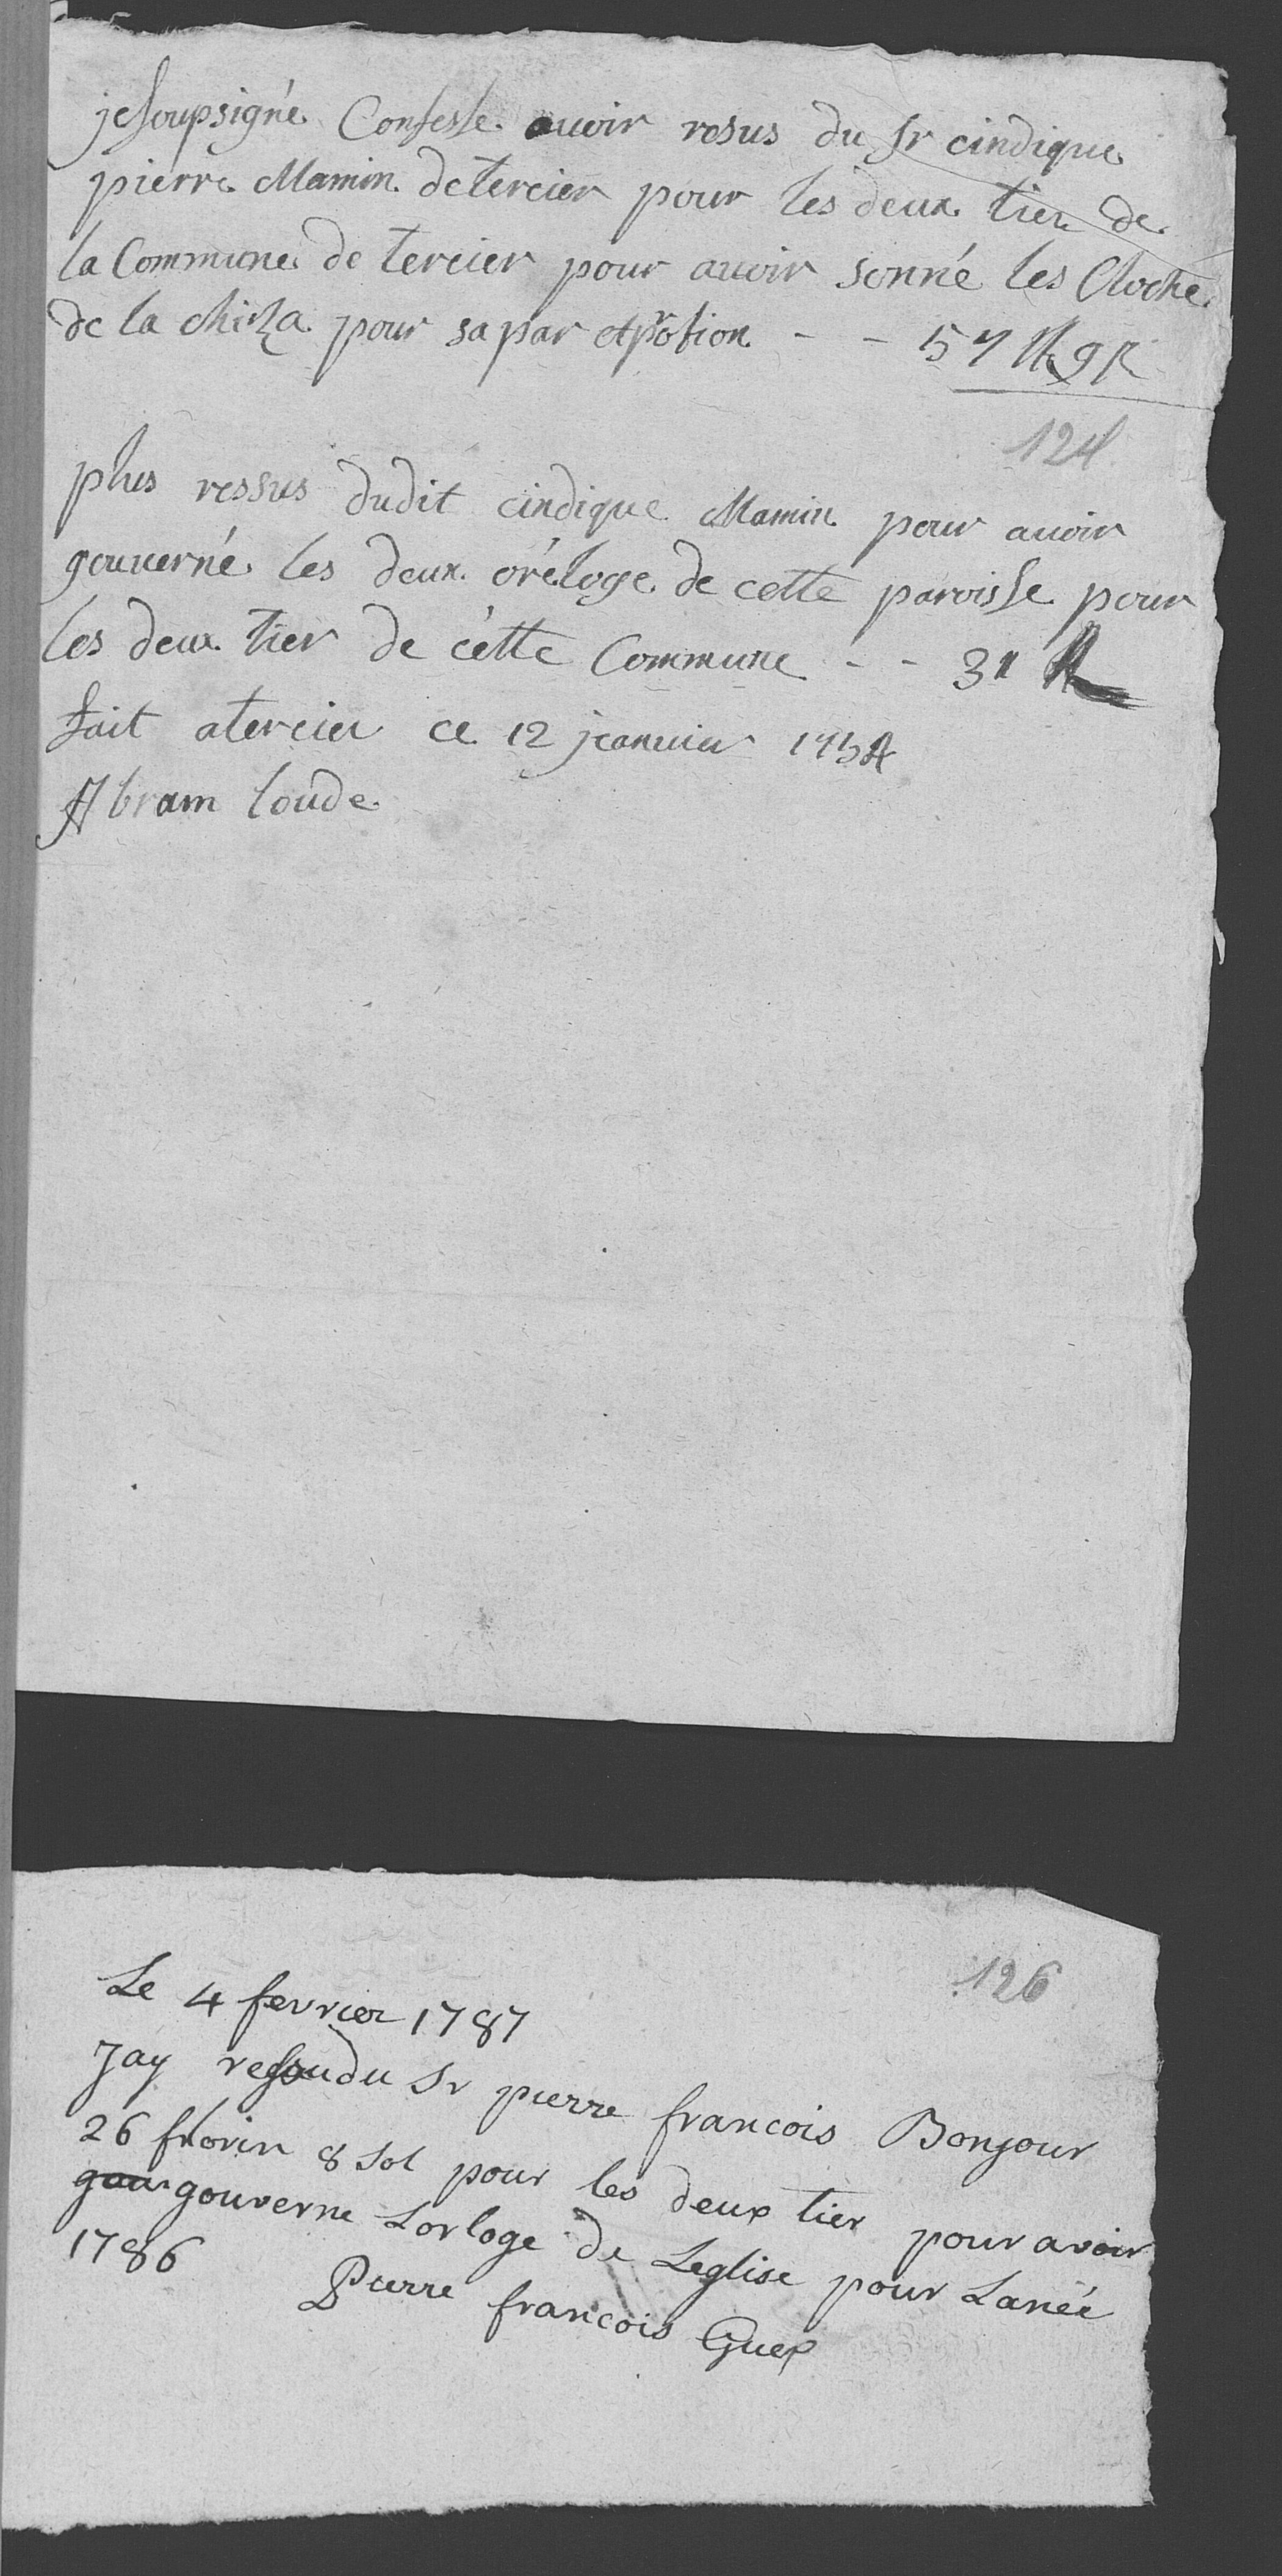 je soupsigné Confesse avoir resus du Sr cindique
pierre Mamin de tercier pour les deux tier de
la Commune de tercier pour avoir sonné les Cloche
de la chieza pour sa par et protion - - 57
124
plus ressus dudit cindique Mamin pour avoir
gouverné les deux oréloge de cette paroisse pour
les deux tier de cétte Commune - - 31
fait a tercier ce 12 jeanvier
Abram loude
126
Le 4 fevrier 1787
Jay ressu du Sr pierre francois Bonjour
26 florin 8 Sol pour les deux tier pour avoir
gouverne Lorloge de Leglise pour Lanéé
1786
Pierre francois Guex